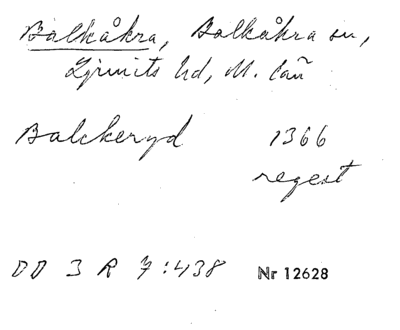 Balkåkra, Balkåkra sn,
Ljunits hd, M. län
Balckeryd 1366
regest
DD 3 R 7:438 Nr 12628